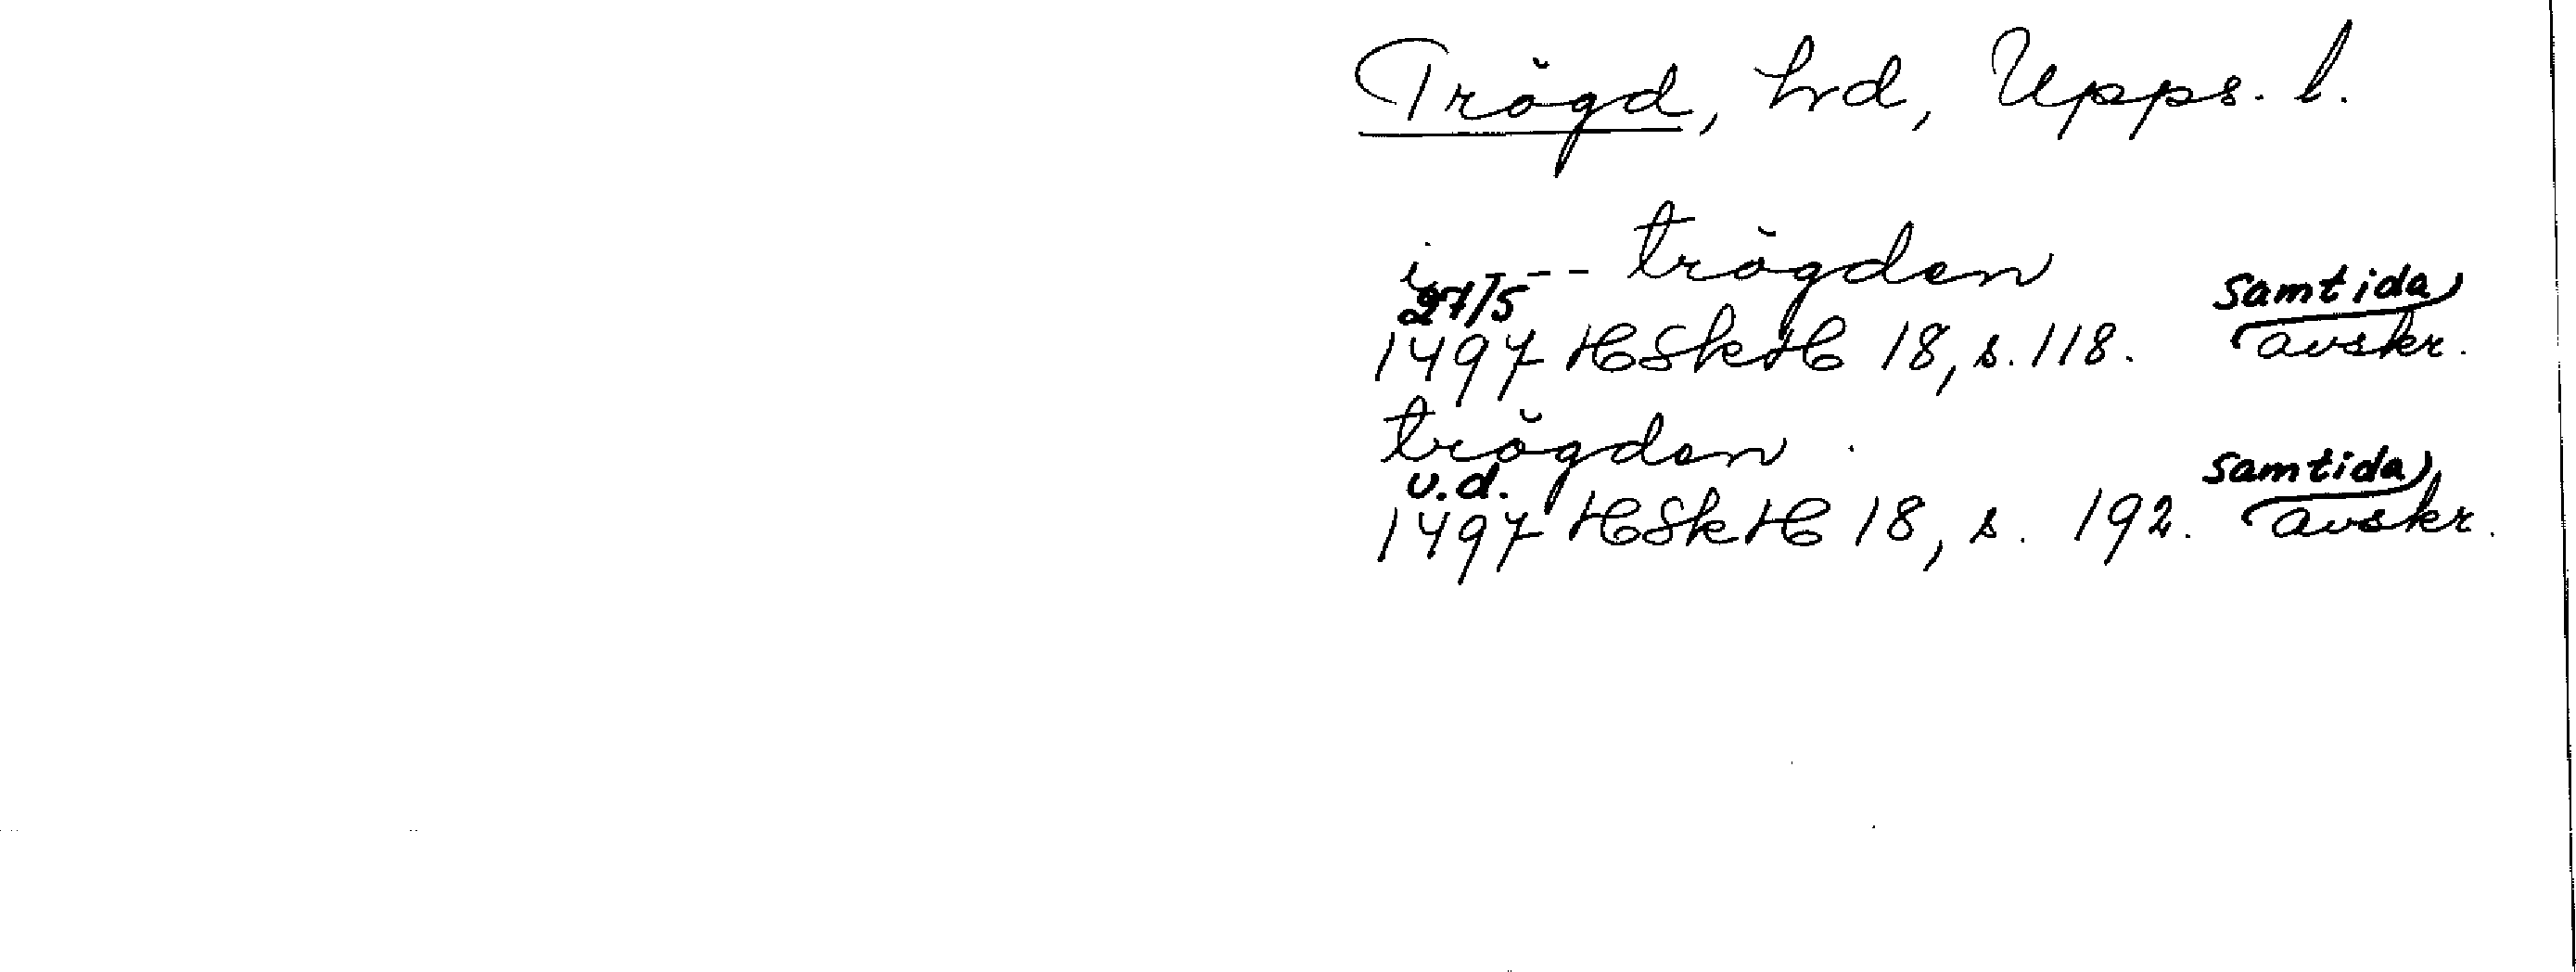 Trögd, hd, Upps. l.
i --- trögden
27/5 samtida
1497 HSkH 18, s. 118. avskr.
trögden
u.d. samtida
1497 HSkH 18, s. 192. avskr.